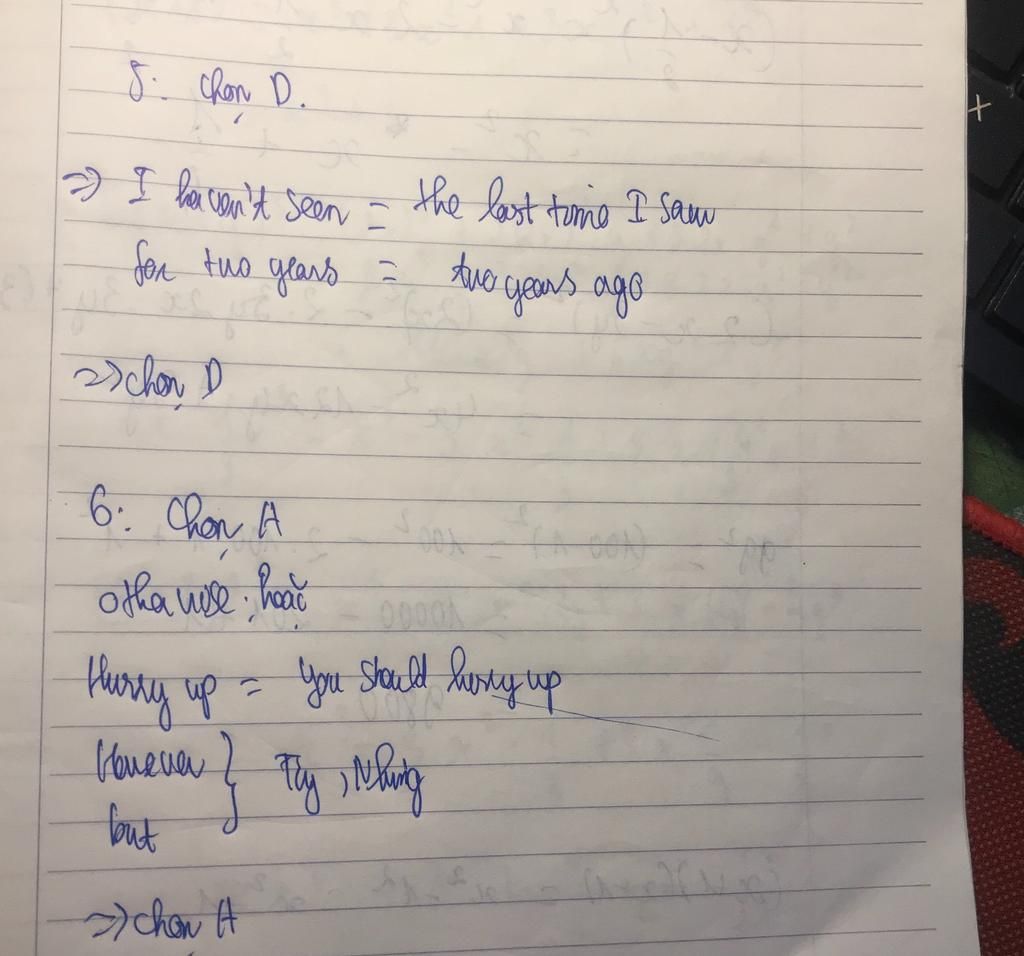 5: Chọn D.
=> I haven't seen = the last time I saw
for two years = two years ago
=> chọn D
6: Chọn A
otherwise: hoặc
Hurry up = You should hurry up
However } Tuy, Nhưng
but
=> chọn A